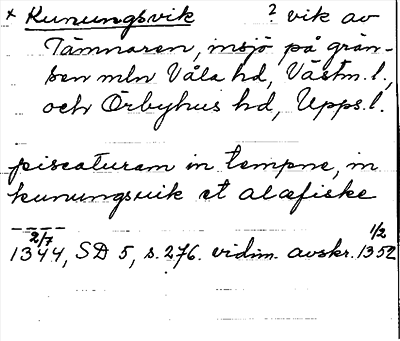 × Kunungsvik ? vik av
Tämnaren, insjö på grän-
sen mln Våla hd, Västm. l.,
och Örbyhus hd, Upps. l.
piscaturam in tempne, in
kunungsuik et alæfiske
2/7 1/2
1344, SD 5, s. 276. vidim. avskr. 1352